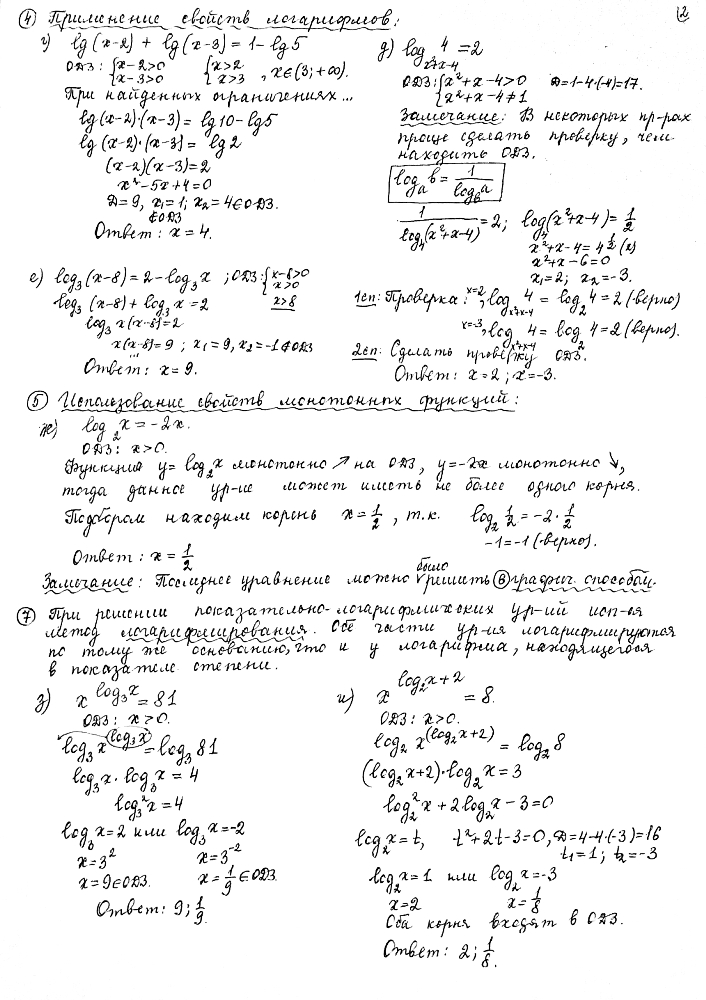 2
④ Применение свойств логарифмов:
г) lg(x-2) + lg(x-3) = 1 - lg5
ОДЗ: {x-2>0 {x>2
{x-3>0 {x>3 , x∈(3;+∞).
При найденных ограничениях...
lg(x-2)·(x-3) = lg10 - lg5
lg(x-2)·(x-3) = lg2
(x-2)(x-3) = 2
x²-5x+4=0
Д=9, x₁=1; x₂=4∈ОДЗ.
∉ОДЗ
Ответ: x=4.
д) log_{x²+x-4} 4 = 2
ОДЗ: {x²+x-4>0 Д=1-4·(-4)=17.
{x²+x-4≠1
Замечание: В некоторых пр-рах
проще сделать проверку, чем
находить ОДЗ.
log_a b = 1/log_b a
1/log₄(x²+x-4) = 2; log₄(x²+x-4) = 1/2
x²+x-4 = 4^{1/2} (x)
x²+x-6=0
x₁=2; x₂=-3.
1сп: Проверка: x=2, log_{x²+x-4} 4 = log₂ 4 = 2 (верно)
x=-3, log_{x²+x-4} 4 = log₂ 4 = 2 (верно).
2сп: Сделать проверку ОДЗ.
Ответ: x=2; x=-3.
е) log₃(x-8) = 2 - log₃x ; ОДЗ: {x-8>0
{x>0
log₃(x-8) + log₃x = 2 x>8
log₃x(x-8)=2
x(x-8)=9 ; x₁=9, x₂=-1∉ОДЗ
...
Ответ: x=9.
⑤ Использование свойств монотонных функций:
ж) log₂x = -2x.
ОДЗ: x>0.
Функция y=log₂x монотонно ↗ на ОДЗ, y=-2x монотонно ↘,
тогда данное ур-ие может иметь не более одного корня.
Подбором находим корень x=1/2, т.к. log₂ 1/2 = -2·1/2
-1=-1 (верно).
Ответ: x=1/2
Замечание: Последнее уравнение можно было решить ⑥ график. способом.
⑦ При решении показательно-логарифмических ур-ий исп-ся
метод логарифмирования. Обе части ур-ия логарифмируются
по тому же основанию, что и у логарифма, находящегося
в показателе степени.
з) x^{log₃x} = 81
ОДЗ: x>0.
log₃x^{(log₃x)} = log₃81
log₃x·log₃x = 4
log₃²x = 4
log₃x=2 или log₃x=-2
x=3² x=3⁻²
x=9∈ОДЗ. x=1/9∈ОДЗ.
Ответ: 9; 1/9.
и) x^{log₂x+2} = 8.
ОДЗ: x>0.
log₂x^{(log₂x+2)} = log₂8
(log₂x+2)·log₂x=3
log₂²x+2log₂x-3=0
log₂x=t, t²+2t-3=0, Д=4-4·(-3)=16
t₁=1; t₂=-3
log₂x=1 или log₂x=-3
x=2 x=1/8
Оба корня входят в ОДЗ.
Ответ: 2; 1/8.